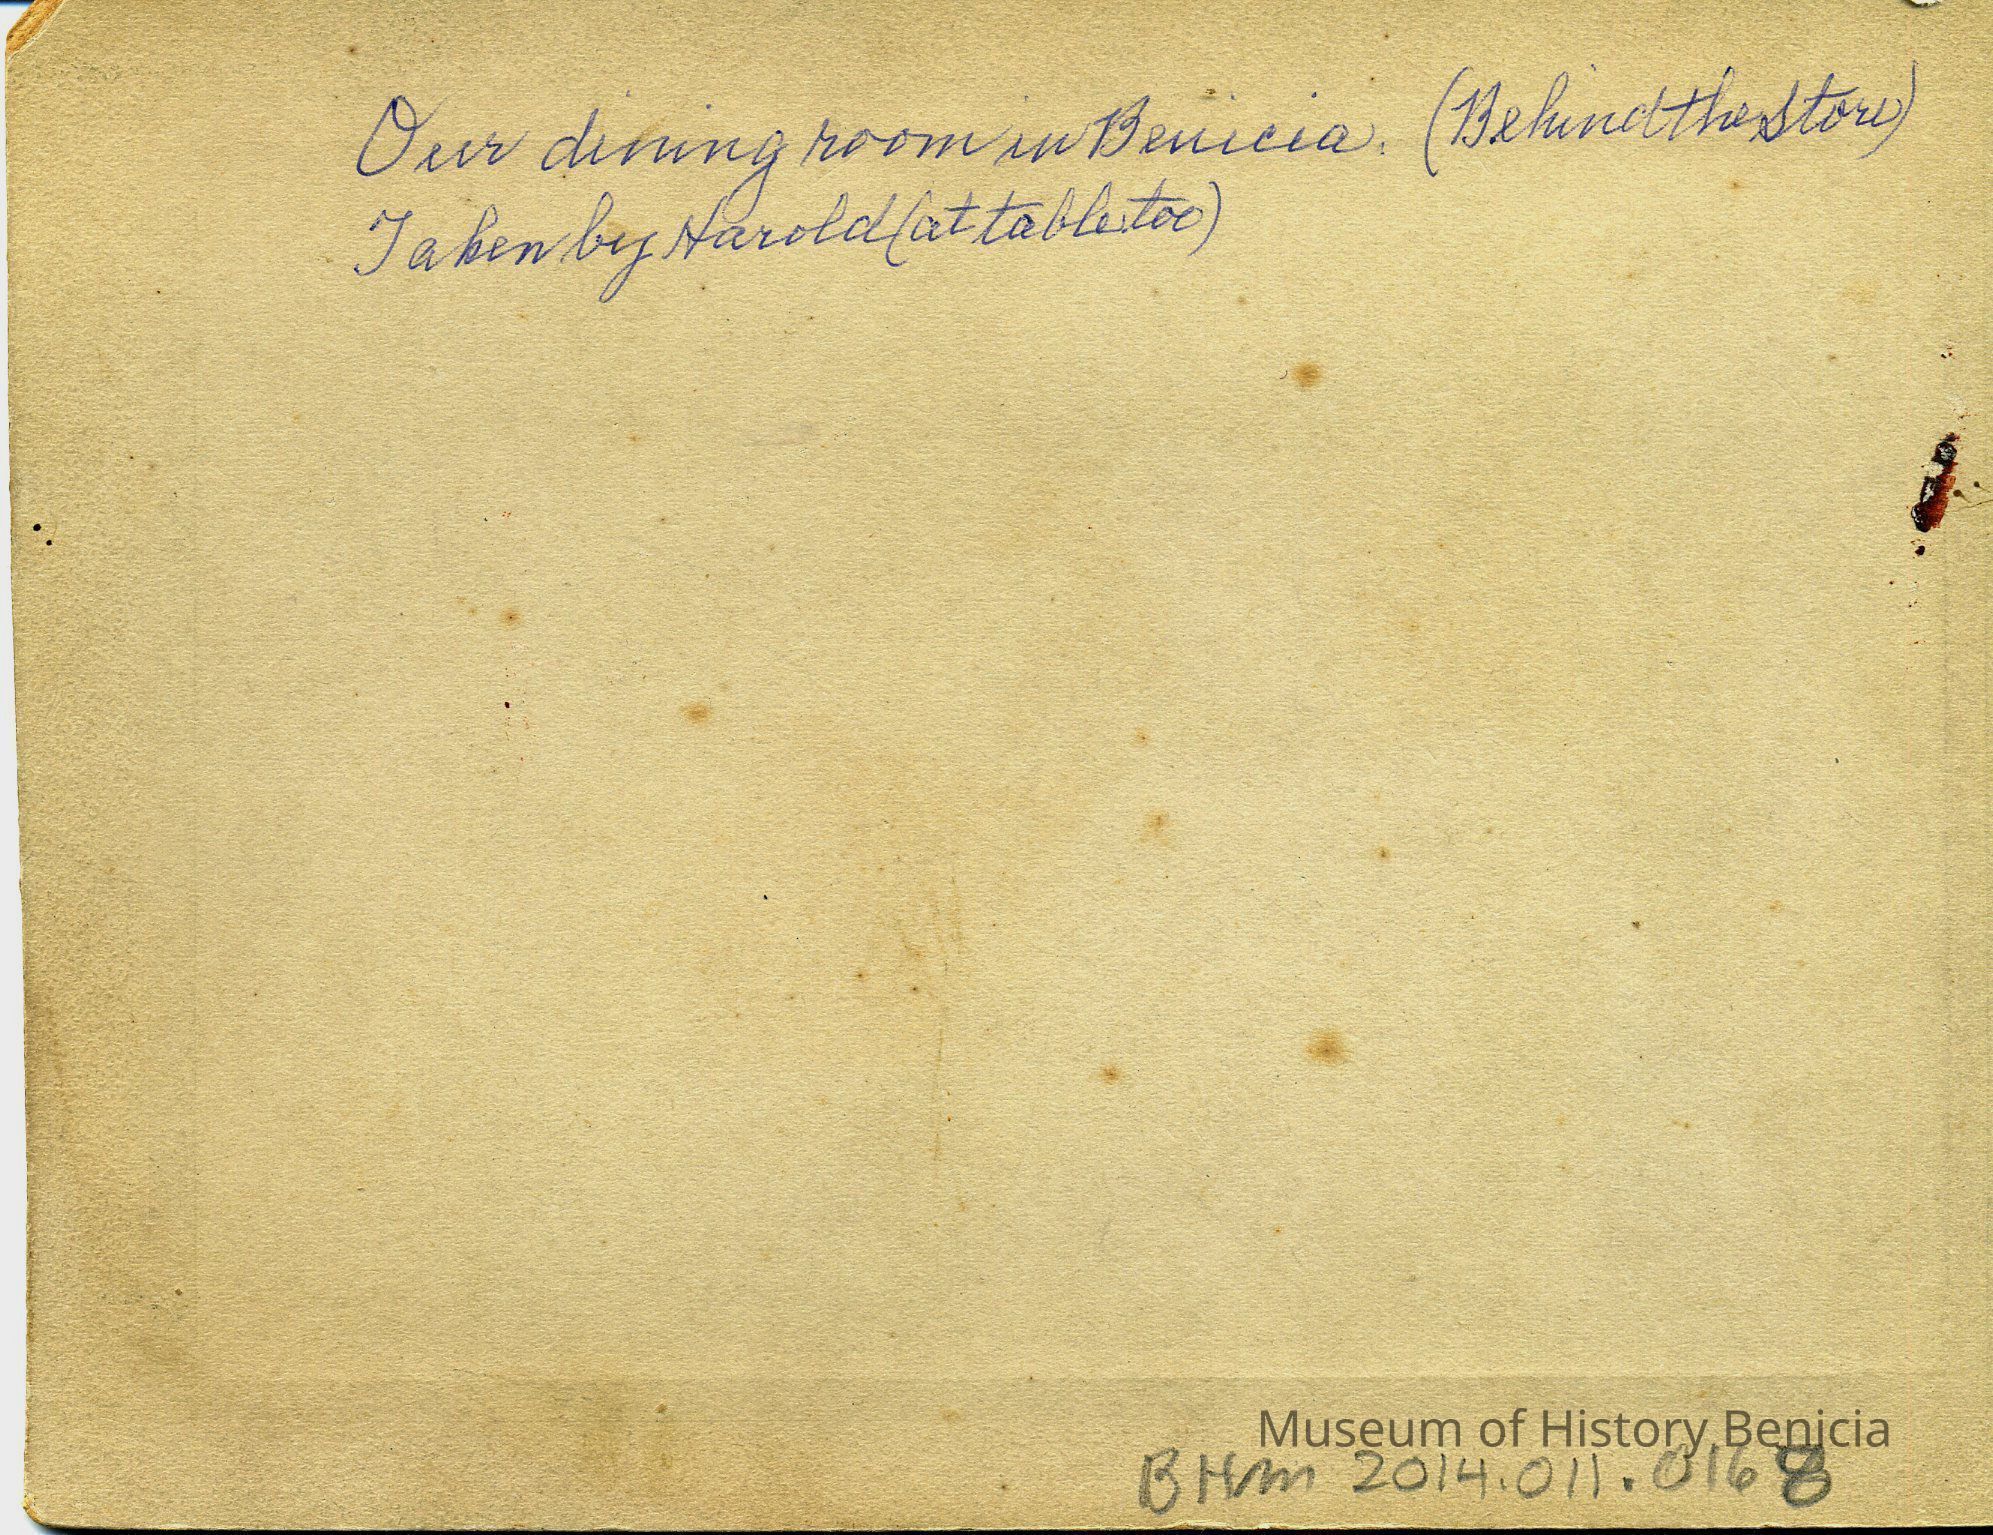 Our dining room in Benicia. (Behind the Store)
Taken by Harold (at table too)
Museum of History Benicia
BHM 2014.011.0168